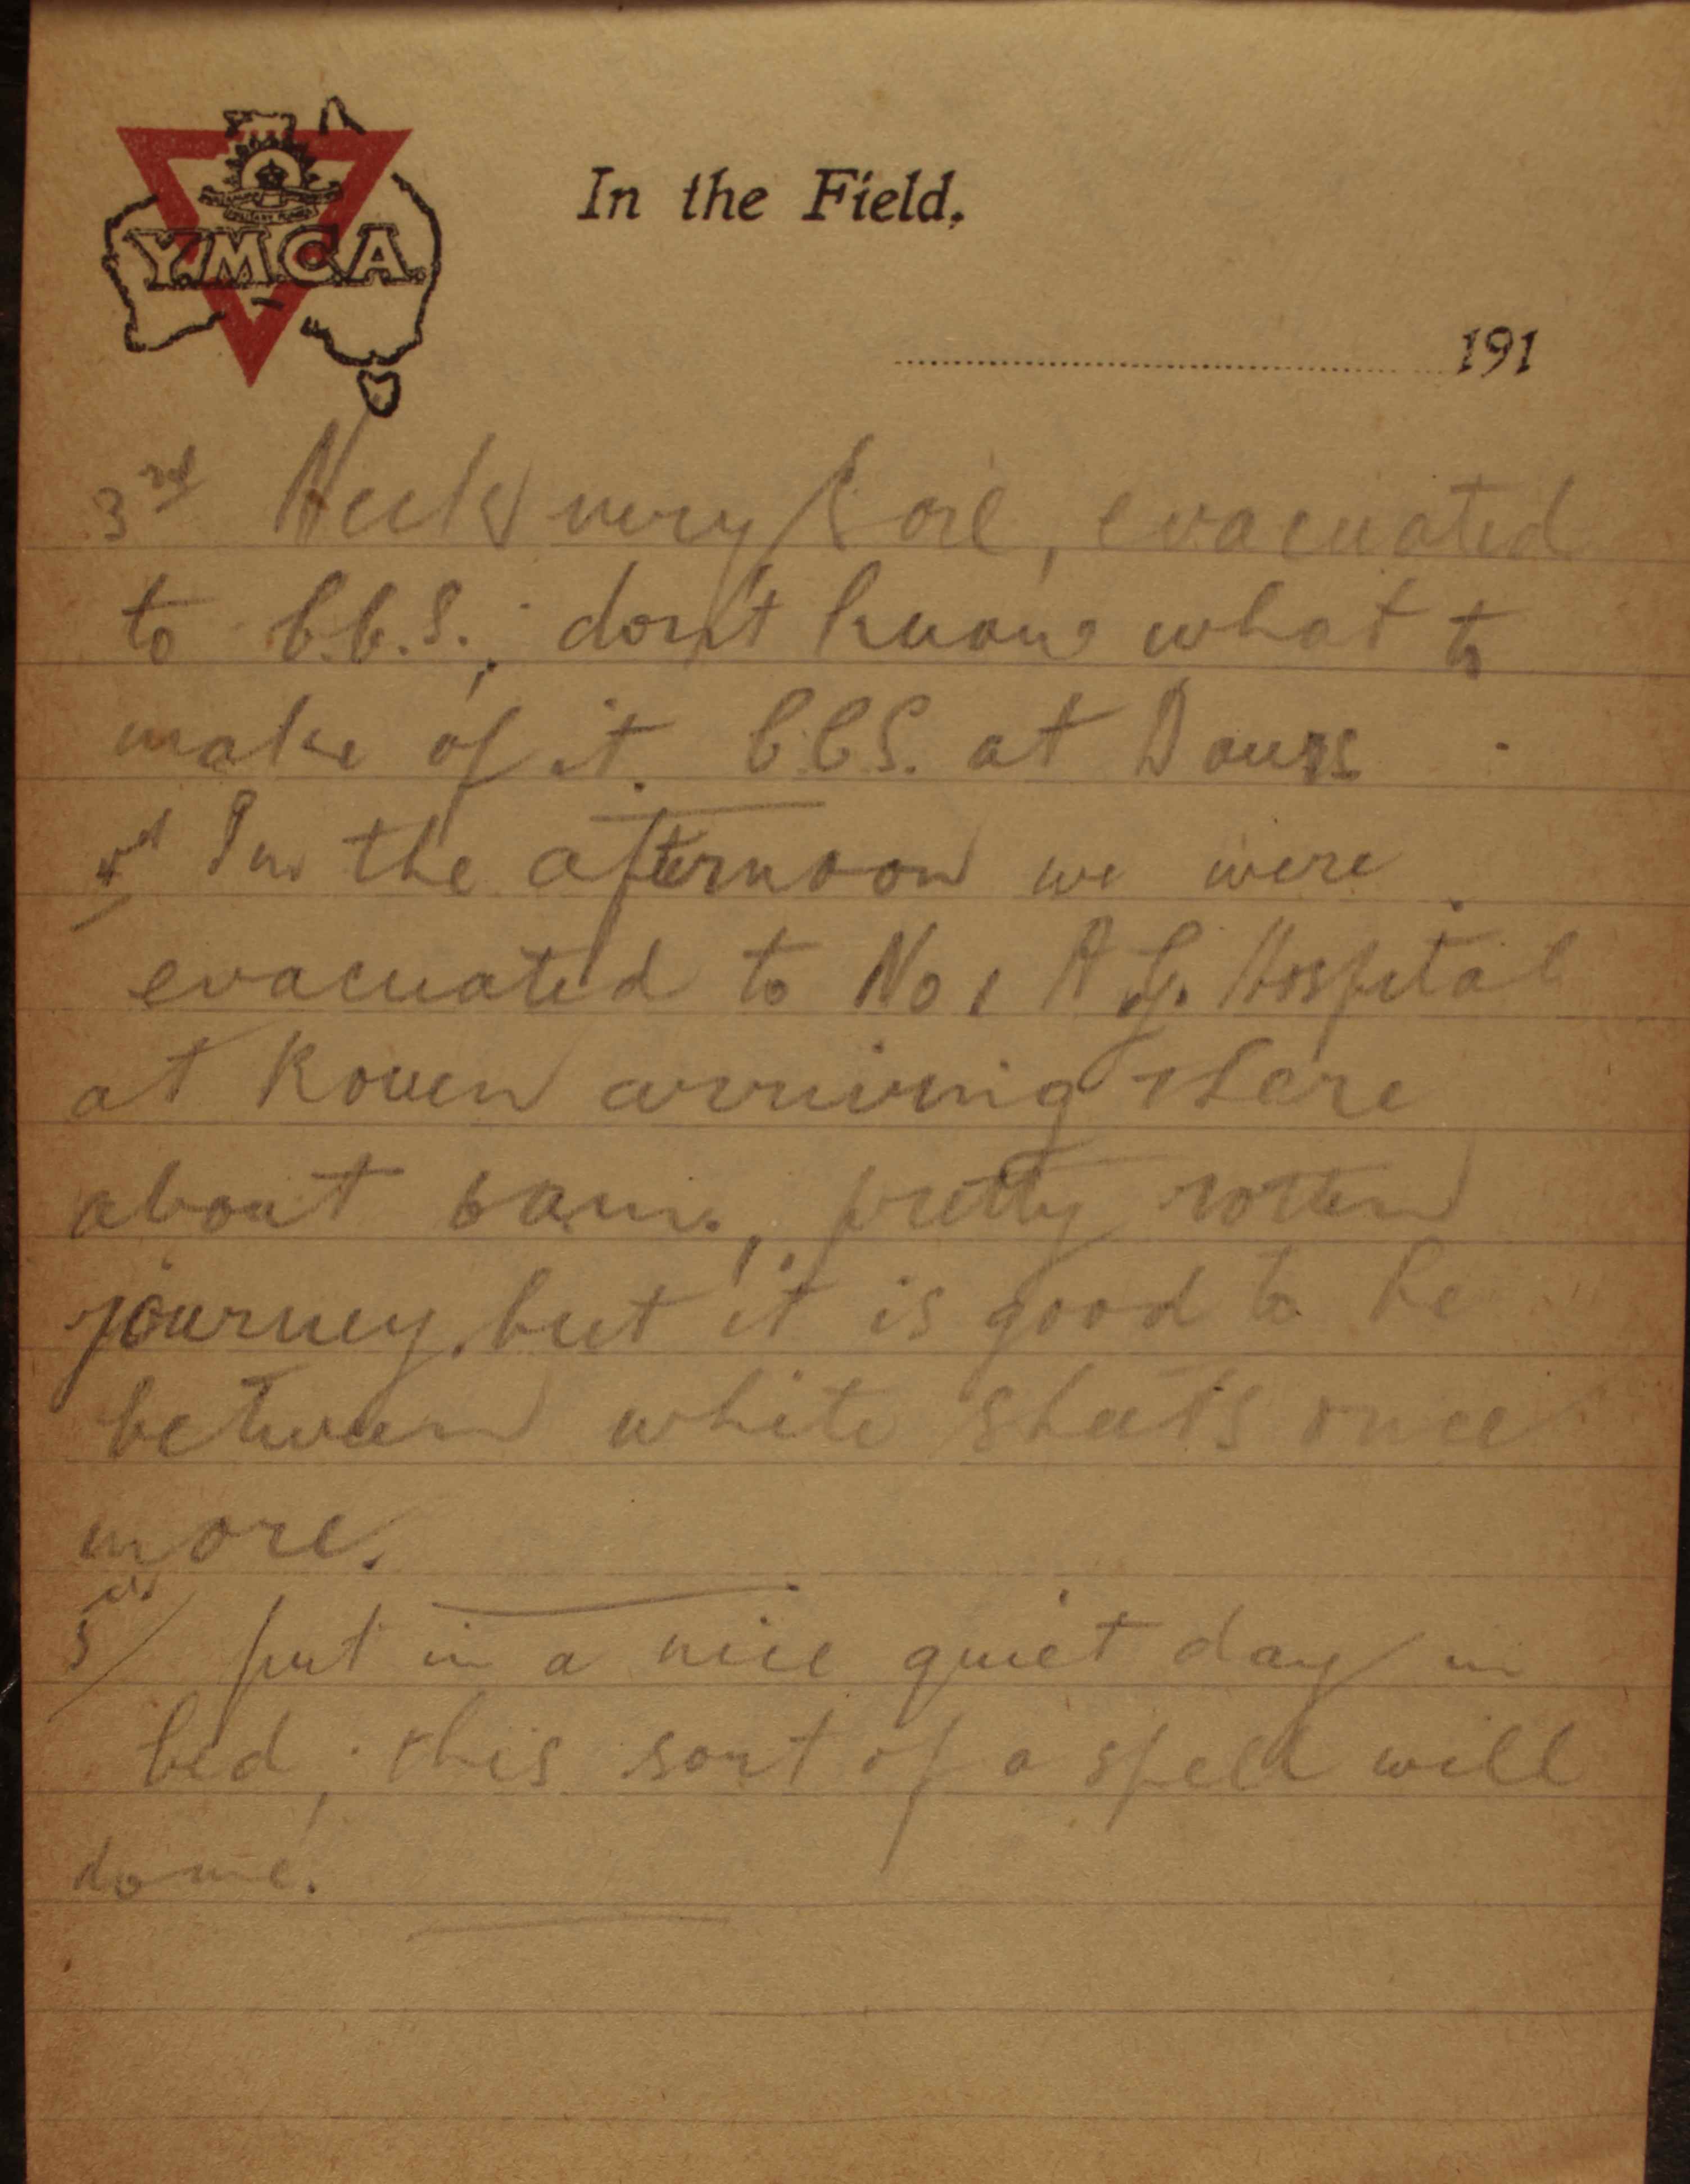 Y.M.C.A.
In the Field,
191
3rd Neck very Sore, evacuated
to C.C.S.; don't know what to
make of it. C.C.S. at Daours
4th In the afternoon we were
evacuated to No 1 A.G. Hospital
at Rouen arriving there
about 6 am., pretty rotten
journey, but it is good to be
between white sheets once
more.
5th put in a nice quiet day in
bed; this sort of a spell will
do me.